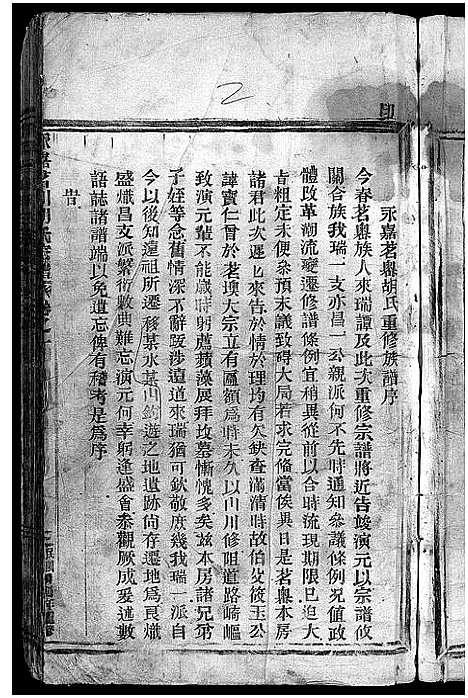 2
印
永嘉茗嶴胡氏重修族譜序
今春茗嶴族人來瑞譚及此次重修宗譜將近告竣演元以宗譜攸
關合族我瑞一支亦昌一公親派何不先時通知參議條例况值政
體改革潮流變遷修譜條例宜稍異從前以合時流現期限已迫大
㫖粗定未便叅參末議致碍大局若求完偹當俟異日是茗嶴本房
諸君此次遲迟來告於情於理均有欠缺查滿清時故伯攵筱玉公
諱寶仁曾於茗墺大宗立有匾額爲時未久以山川修阻道路崎嶇
致演元輩不能歲時躬薦蘋藻展拜坟墓慚愧多矣兹本房諸兄弟
子姪等念舊情深不辭跋涉遠道來瑞猶可欽敬庶幾我瑞一派自
今以後知遑祖所遷移某水某山釣遊之地遺跡尙存遷地爲良熾
盛熾昌支派繁衍數典難忘演元何幸躬逢盛會叅觀厥成爰述數
語誌諸譜端以免遺忘俾有稽考是爲序
旹